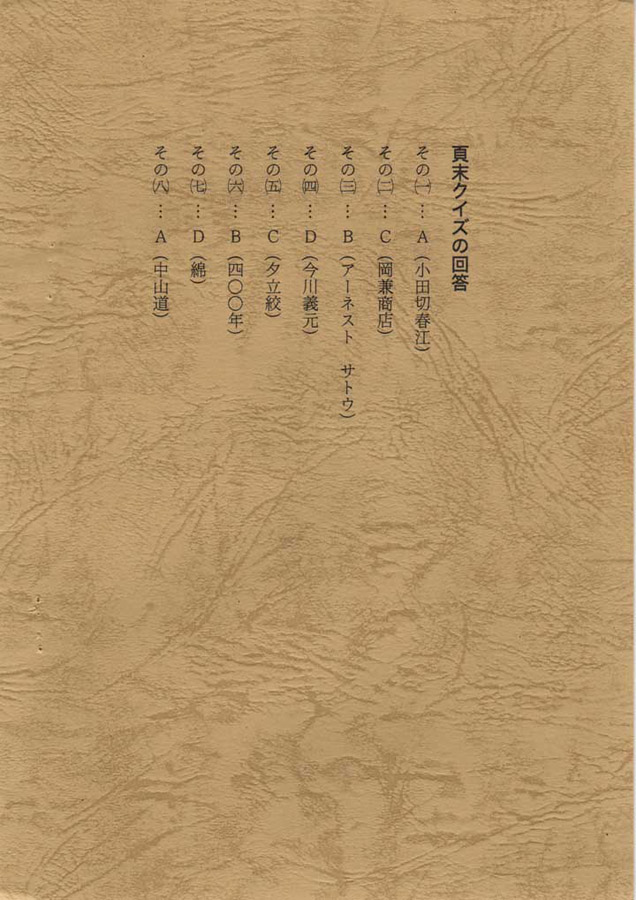 頁末クイズの回答
その㈠…A(小田切春江)
その㈡…C(岡兼商店)
その㈢…B(アーネスト サトウ)
その㈣…D(今川義元)
その㈤…C(夕立絞)
その㈥…B(四〇〇年)
その㈦…D(綿)
その㈧…A(中山道)